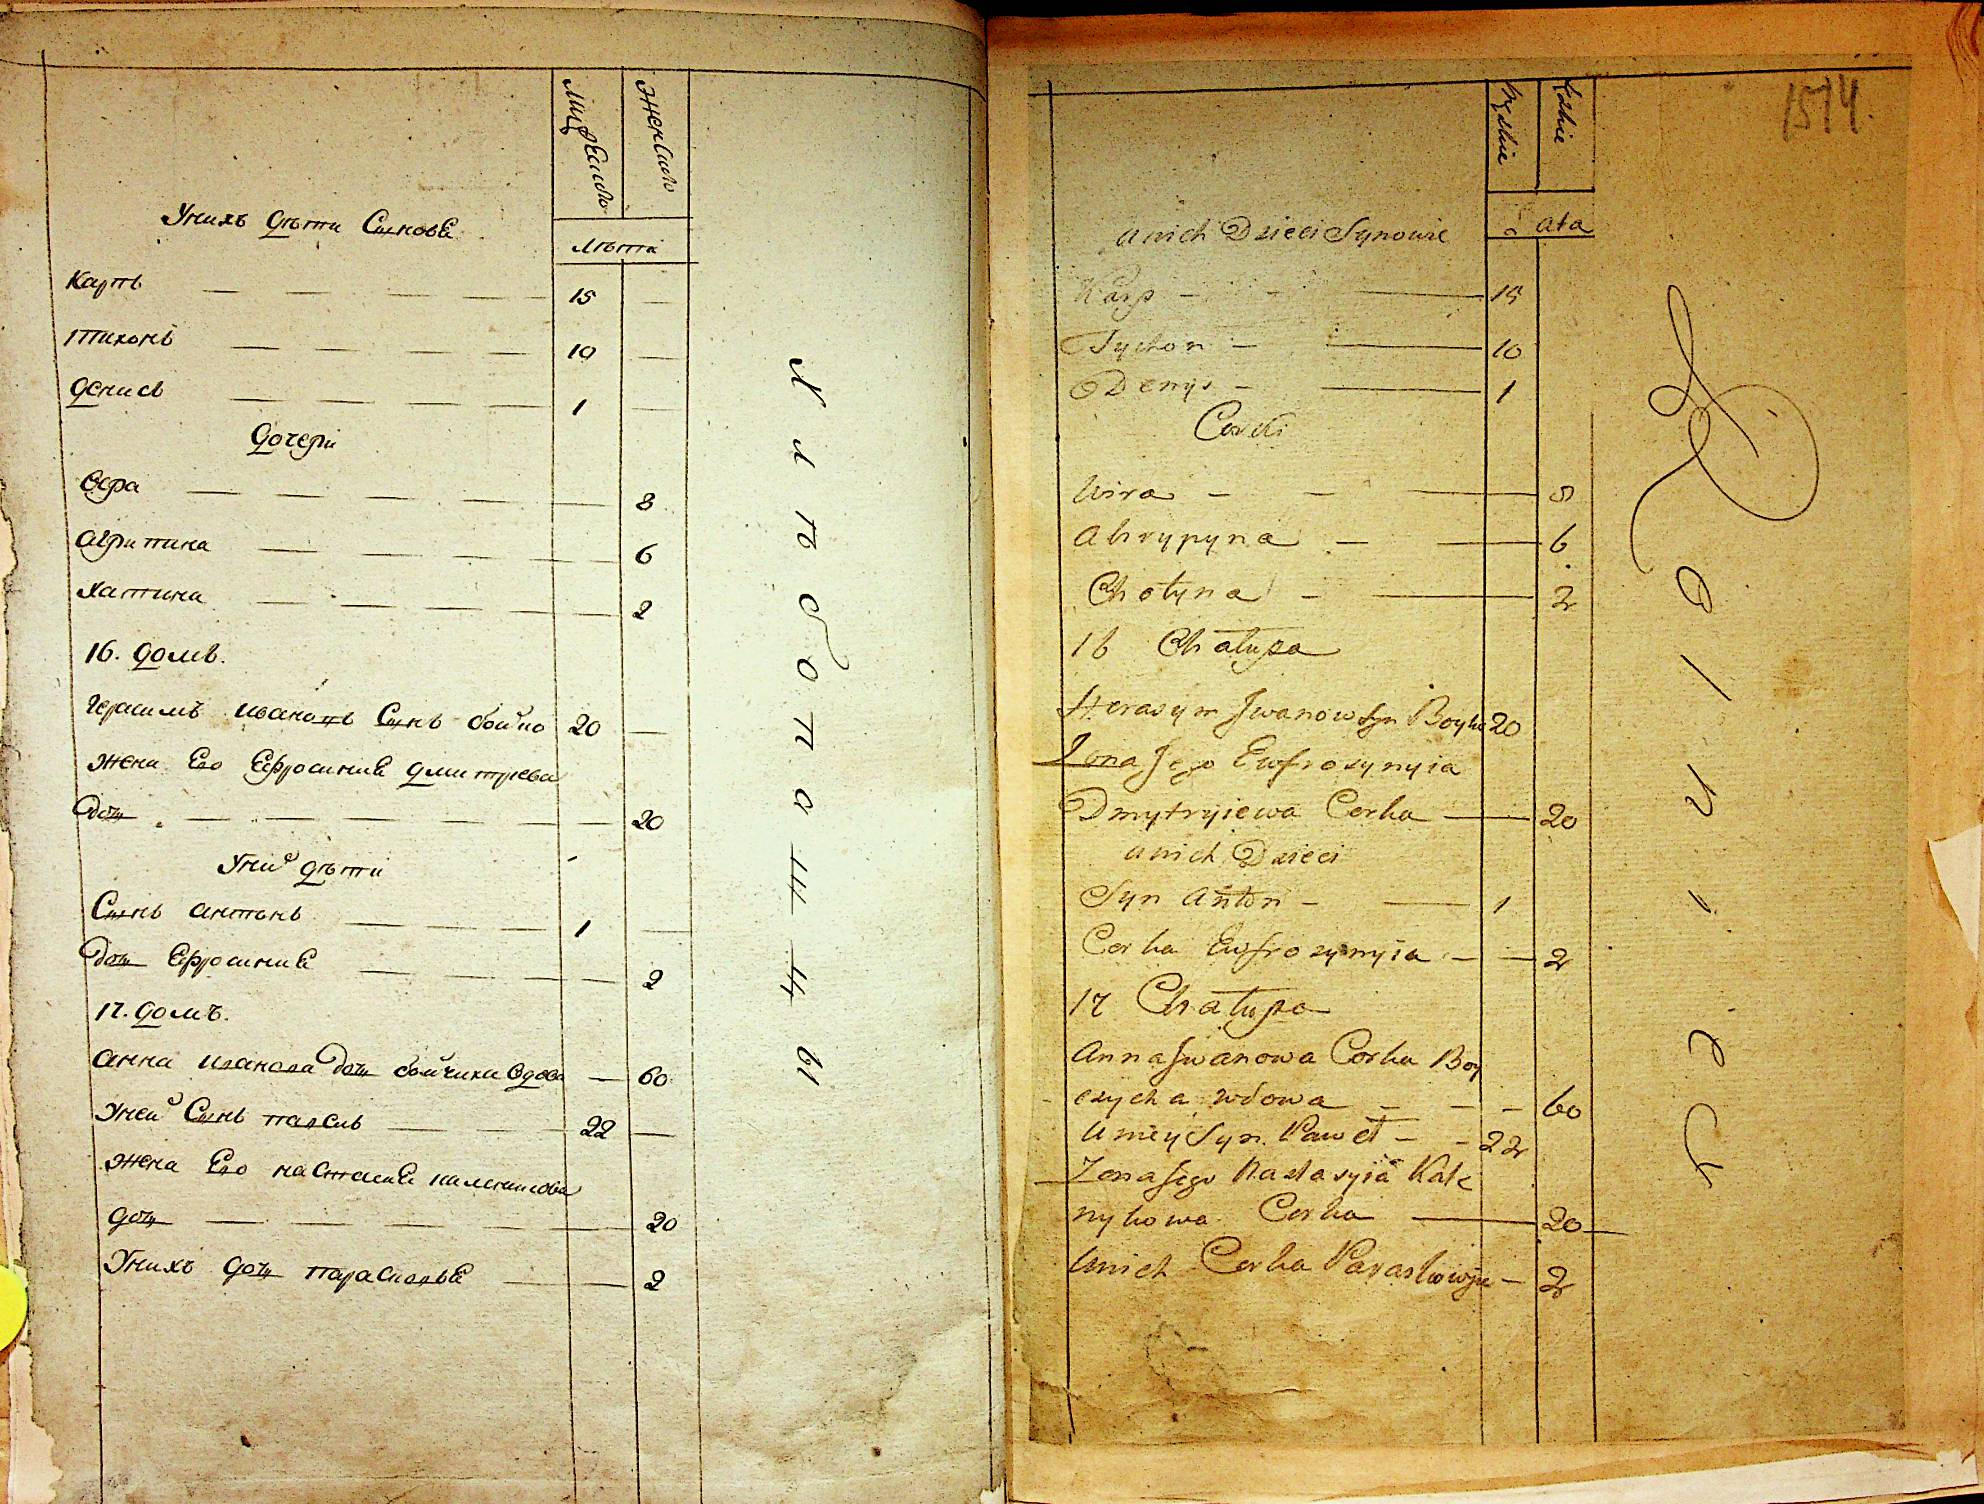 мужеска
женска
лѣта
Унихъ дѣти Сынове
Карпъ 15
тихонъ 10
денисъ 1
дочери
вѣра 8
агрипина 6
хатина 2
16. домъ.
герасимъ ивановъ Сынъ бойко 20
жена Его Ефросиния дмитриева
дочь 20
Уних дѣти
Сынъ антонъ 1
дочь Ефросиния 2
17. домъ.
анна иванова дочь бойчиха вдова 60
Уней Сынъ павелъ 22
жена Его настасия калеников
дочь 20
Унихъ дочь парасковья 2
Х л ѣ б о п а ш ц ы
1574.
Męzkie
Zeńskie
Lata
unich Dzieci Synowie
Karp 15
Tychon 10
Denys 1
Corki
Wira 8
Ahrypyna 6
Chotyna 2
16 Chałupa
Herasym Jwanow Syn Boyko 20
Zona Jego Ewfrosynyia
Dmytryiewa Corka 20
unich Dzieci
Syn Anton 1
Corka Ewfrosynyia 2
17 Chałupa
Anna Jwanowa Corka Boy
czycha wdowa 60
Uniey Syn Paweł 22
Zona Jego Nastasyia Kale
nykowa Corka 20
Unich Corka Paraskowija 2
R o l n i c y